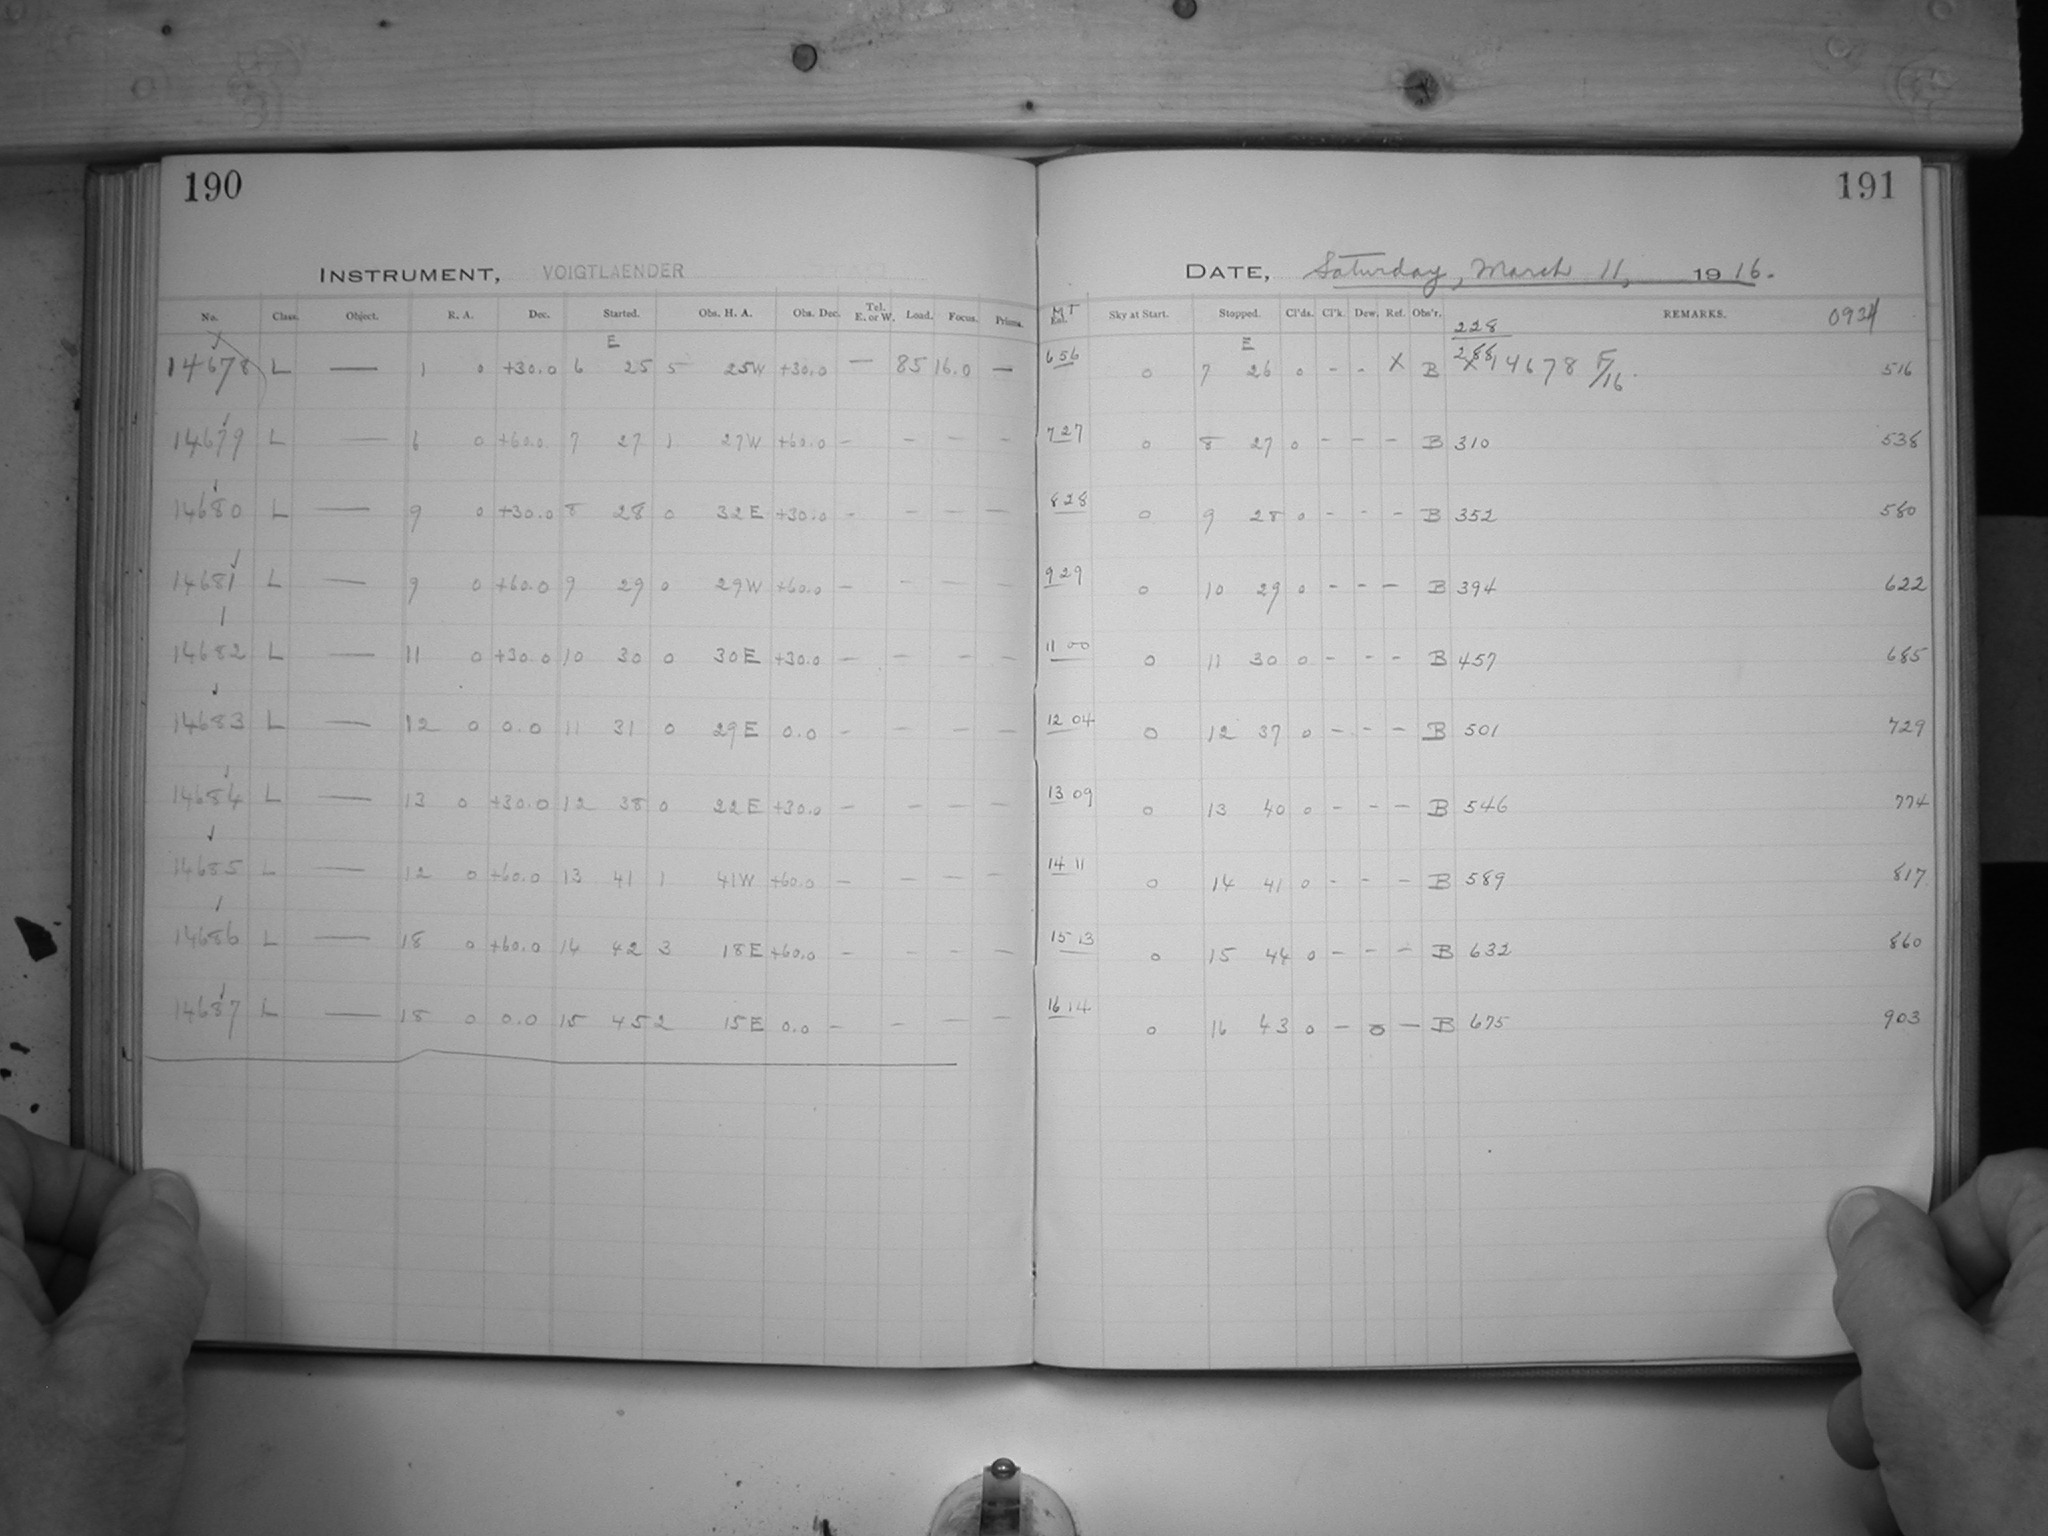 190
INSTRUMENT, VOIGTLAENDER
No. Class. Object. R. A. Dec. Started. Obs. H. A. Obs. Dec. Tel. E. or W. Load. Focus. Prisms.
E
14678 L — 1 0 +30.0 6 25 5 25W +30.0 — 85 16.0 —
14679 L — 6 0 +60.0 7 27 1 27W +60.0 — — — —
14680 L — 9 0 +30.0 8 28 0 32E +30.0 — — — —
14681 L — 9 0 +60.0 9 29 0 29W +60.0 — — — —
14682 L — 11 0 +30.0 10 30 0 30E +30.0 — — — —
14683 L — 12 0 0.0 11 31 0 29E 0.0 — — — —
14684 L — 13 0 +30.0 12 38 0 22E +30.0 — — — —
14685 L — 12 0 +60.0 13 41 1 41W +60.0 — — — —
14686 L — 18 0 +60.0 14 42 3 18E +60.0 — — — —
14687 L — 18 0 0.0 15 45 2 15E 0.0 — — — —
191
DATE, Saturday, March 11, 1916.
MT Sky at Start. Stopped. Cl'ds. Cl'k. Dew. Ref. Obs'r. REMARKS. 0934
E 228
656 0 7 26 0 - - X B 288 X14678 F/16. 516
727 0 8 27 0 - - - B 310 538
828 0 9 28 0 - - - B 352 580
929 0 10 29 0 - - - B 394 622
11 00 0 11 30 0 - - - B 457 685
12 04 0 12 37 0 - - - B 501 729
13 09 0 13 40 0 - - - B 546 774
14 11 0 14 41 0 - - - B 589 817
15 13 0 15 44 0 - - - B 632 860
16 14 0 16 43 0 - 0 - B 675 903